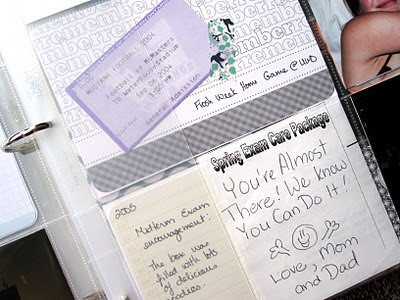 remember
MUSTANGS FOOTBALL 2004
Football vs McMasters
TD Waterhouse Stadium
Sep 06 2004
General Admission
Frosh Week Home Game @ UWO
Spring Exam Care Package
You're Almost
There! We know
You Can Do It!
Love, Mom
and Dad
2005
Midterm Exam
encouragement:
The box was
filled with lots
of delicious
goodies.